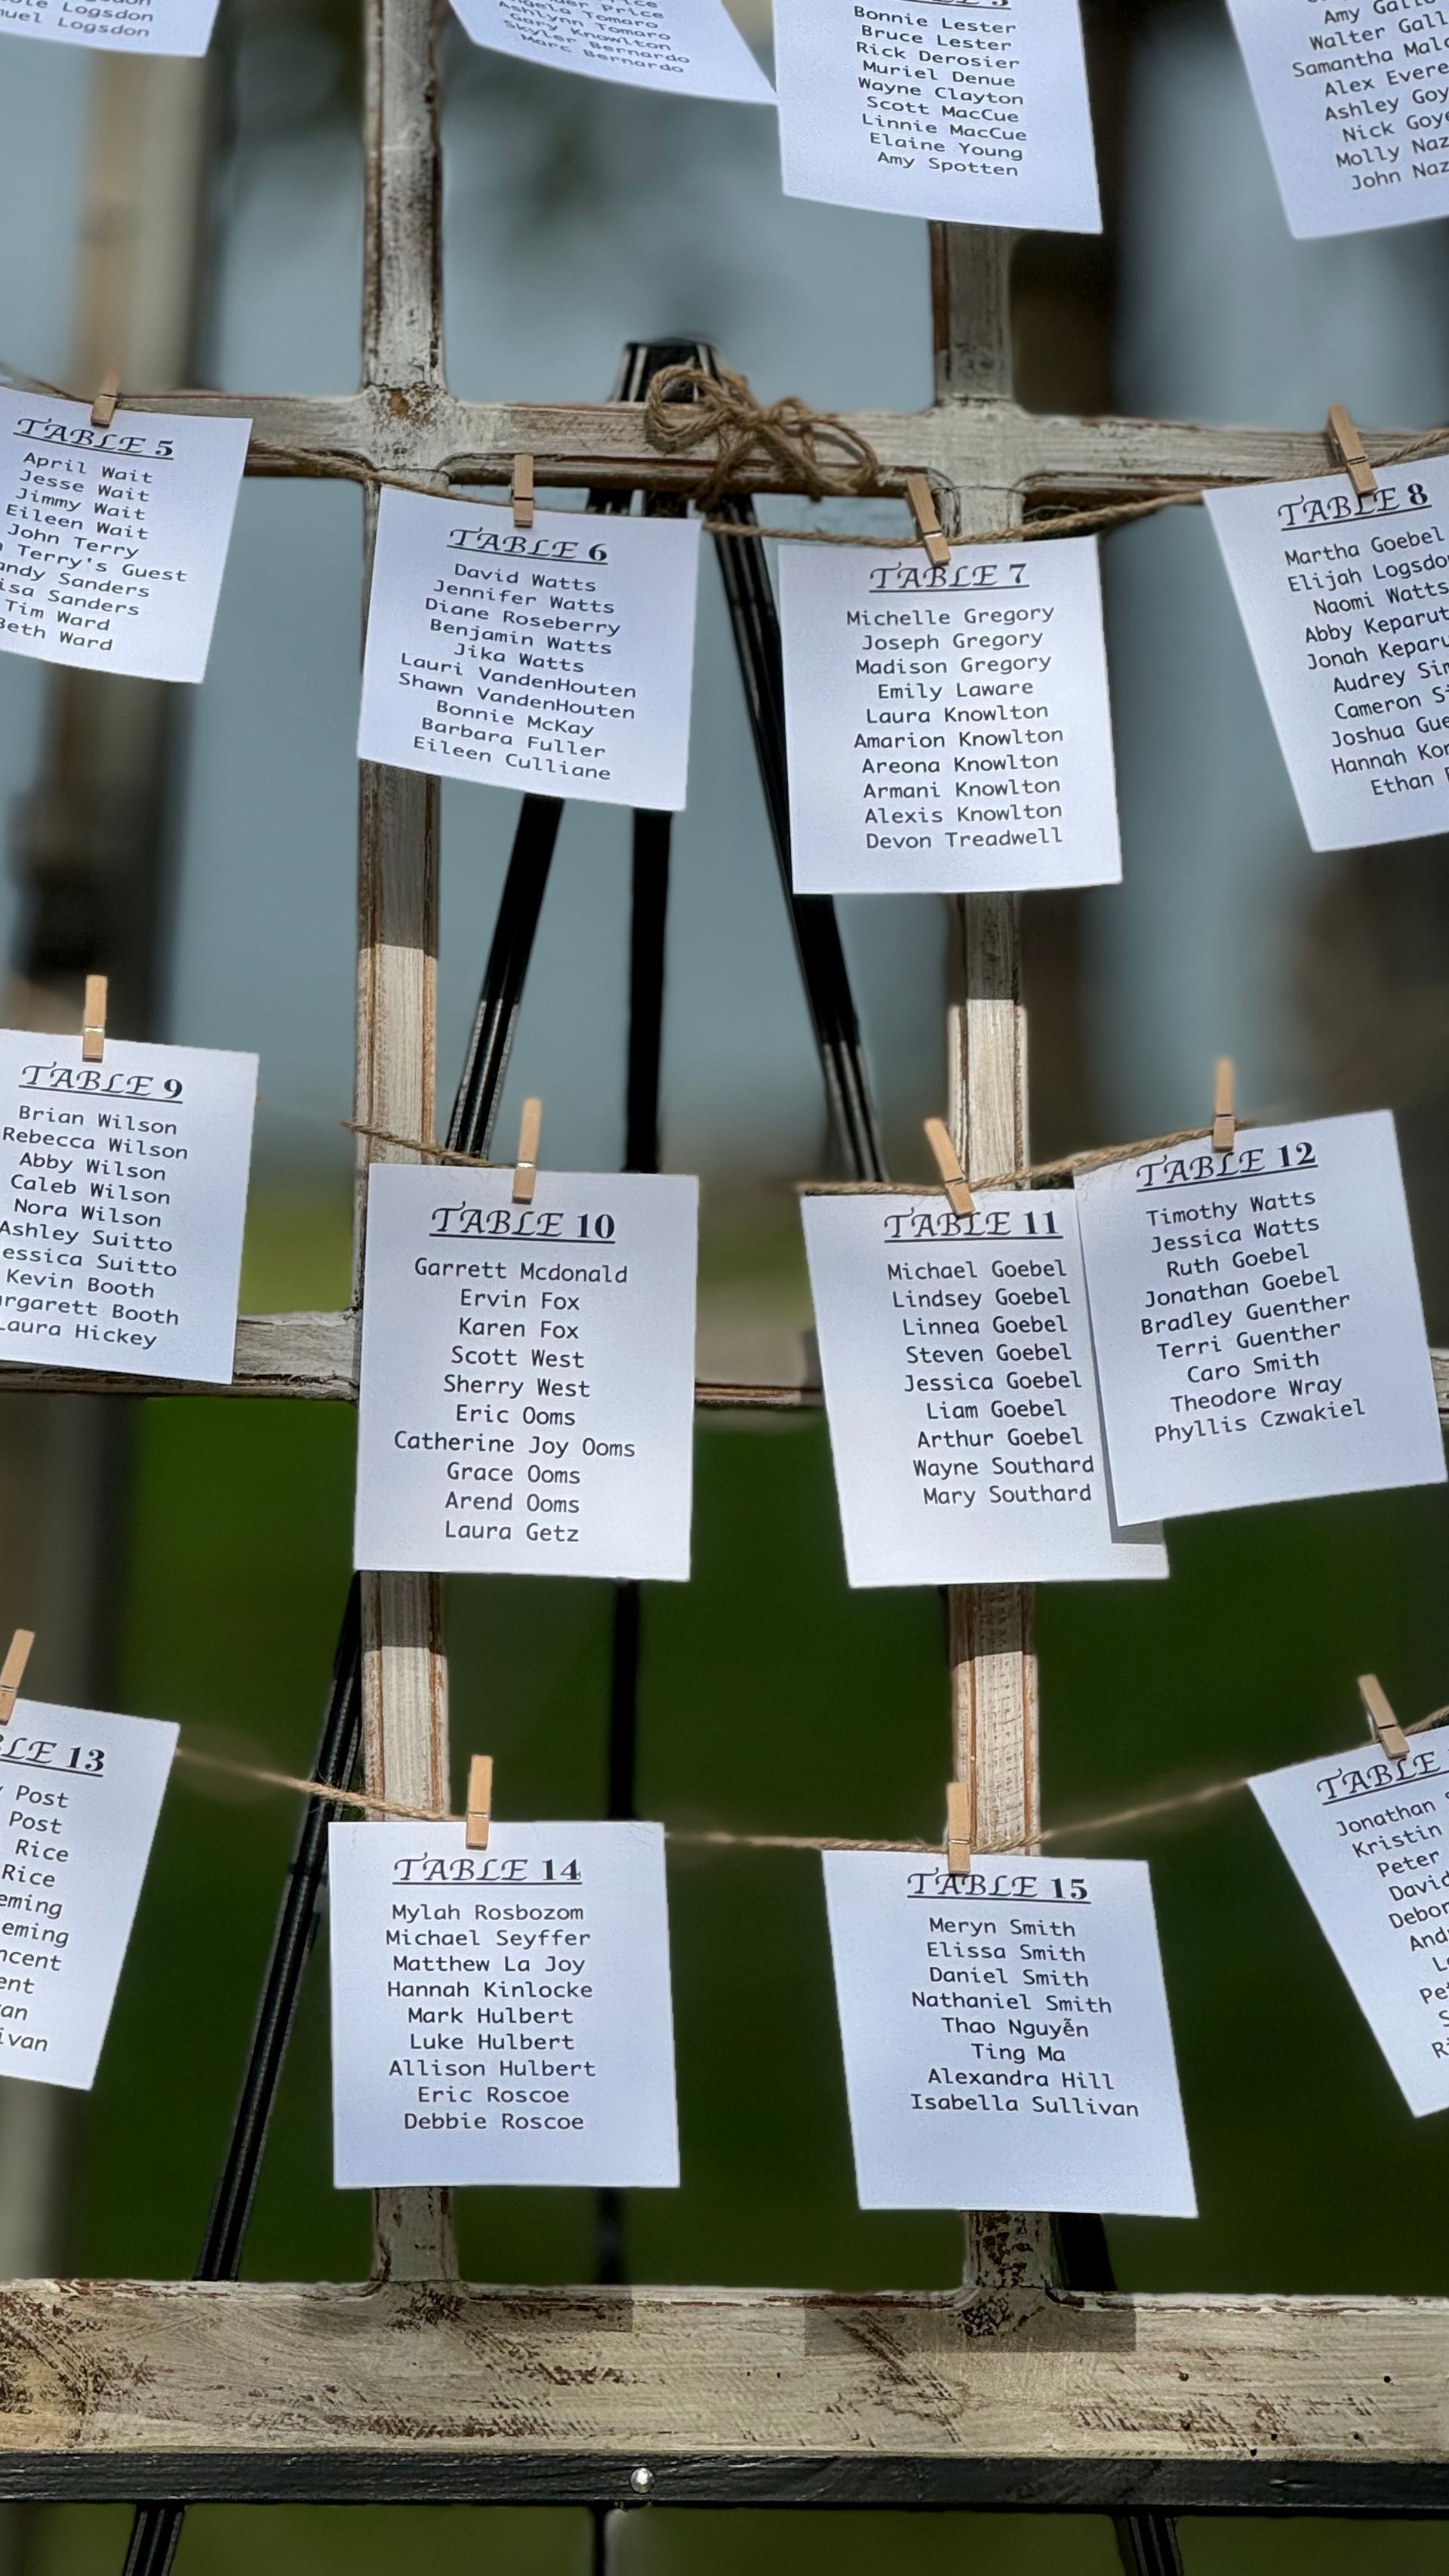 Logsdon
Logsdon
Tomaro
Ashlynn Tomaro
Gary Knowlton
Skyler Bernardo
Marc Bernardo
Bonnie Lester
Bruce Lester
Rick Derosier
Muriel Denue
Wayne Clayton
Scott MacCue
Linnie MacCue
Elaine Young
Amy Spotten
Amy
Walter
Samantha
Alex
Ashley
Nick
Molly
John
TABLE 5
April Wait
Jesse Wait
Jimmy Wait
Eileen Wait
John Terry
Terry's Guest
Sanders
Sanders
Tim Ward
Beth Ward
TABLE 6
David Watts
Jennifer Watts
Diane Roseberry
Benjamin Watts
Jika Watts
Lauri VandenHouten
Shawn VandenHouten
Bonnie McKay
Barbara Fuller
Eileen Culliane
TABLE 7
Michelle Gregory
Joseph Gregory
Madison Gregory
Emily Laware
Laura Knowlton
Amarion Knowlton
Areona Knowlton
Armani Knowlton
Alexis Knowlton
Devon Treadwell
TABLE 8
Martha Goebel
Elijah
Naomi Watts
Abby
Jonah
Audrey
Cameron
Joshua
Hannah
Ethan
TABLE 9
Brian Wilson
Rebecca Wilson
Abby Wilson
Caleb Wilson
Nora Wilson
Ashley Suitto
Suitto
Kevin Booth
Booth
Laura Hickey
TABLE 10
Garrett Mcdonald
Ervin Fox
Karen Fox
Scott West
Sherry West
Eric Ooms
Catherine Joy Ooms
Grace Ooms
Arend Ooms
Laura Getz
TABLE 11
Michael Goebel
Lindsey Goebel
Linnea Goebel
Steven Goebel
Jessica Goebel
Liam Goebel
Arthur Goebel
Wayne Southard
Mary Southard
TABLE 12
Timothy Watts
Jessica Watts
Ruth Goebel
Jonathan Goebel
Bradley Guenther
Terri Guenther
Caro Smith
Theodore Wray
Phyllis Czwakiel
13
Post
Post
Rice
Rice
TABLE 14
Mylah Rosbozom
Michael Seyffer
Matthew La Joy
Hannah Kinlocke
Mark Hulbert
Luke Hulbert
Allison Hulbert
Eric Roscoe
Debbie Roscoe
TABLE 15
Meryn Smith
Elissa Smith
Daniel Smith
Nathaniel Smith
Thao Nguyễn
Ting Ma
Alexandra Hill
Isabella Sullivan
TABLE
Jonathan
Kristin
Peter
David